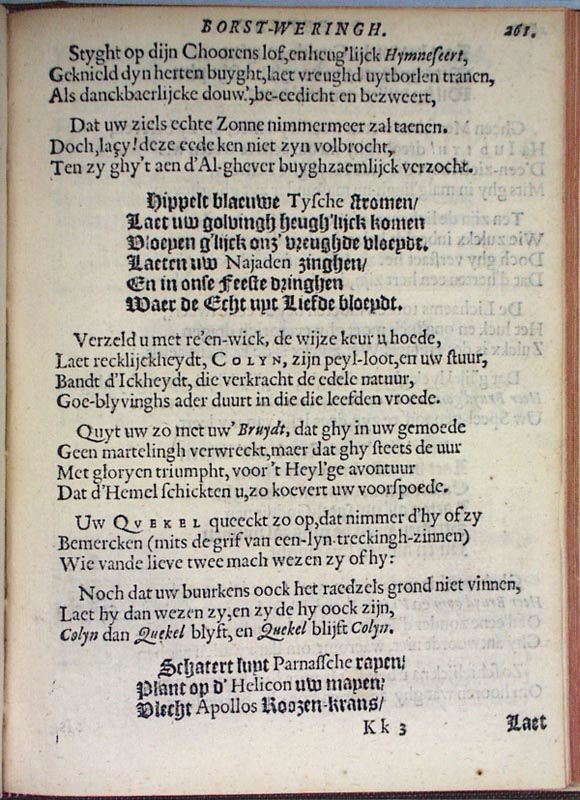 BORST-WERINGH. 261.
Styght op dijn Choorens lof, en heug'lijck Hymneseert,
Geknield dyn herten buyght, laet vreughd uytborlen tranen,
Als danckbaerlijcke douw', be-eedicht en bezweert,
Dat uw ziels echte Zonne nimmermeer zal taenen.
Doch, laçy! deze eede ken niet zyn volbrocht,
Ten zy ghy't aen d'Al-ghever buyghzaemlijck verzocht.
Hippelt blaeuwe Tysche stromen/
Laet uw golvingh heugh'lijck komen
Vloeyen g'lijck onz' vreughde vloeydt,
Laeten uw Najaden zinghen/
En in onse Feeste dringhen
Waer de Echt uyt Liefde bloeydt.
Verzeld u met re'en-wick, de wijze keur u hoede,
Laet recklijckheydt, COLYN, zijn peyl-loot, en uw stuur,
Bandt d'Ickheydt, die verkracht de edele natuur,
Goe-blyvinghs ader duurt in die die leefden vroede.
Quyt uw zo met uw' Bruydt, dat ghy in uw gemoede
Geen martelingh verwreckt, maer dat ghy steets de uur
Met gloryen triumpht, voor 't Heyl'ge avontuur
Dat d'Hemel schickten u, zo koevert uw voorspoede.
Uw QVEKEL queeckt zo op, dat nimmer d'hy of zy
Bemercken (mits de grif van een-lyn-treckingh-zinnen)
Wie vande lieve twee mach wezen zy of hy:
Noch dat uw buurkens oock het raedzels grond niet vinnen,
Laet hy dan wezen zy, en zy de hy oock zijn,
Colyn dan Quekel blyft, en Quekel blijft Colyn.
Schatert luyt Parnassche rayen/
Plant op d' Helicon uw mayen/
Vlecht Apollos Roozen-krans/
Kk 3 Laet